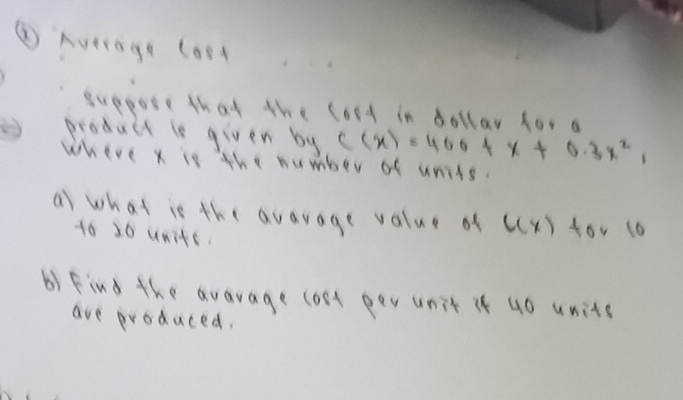 ② Average Cost ...
suppose that the cost in dollar for a
product is given by C(x) = 400 + x + 0.3x²,
where x is the number of units.
a) What is the avarage value of C(x) for 10
to 20 units.
b) Find the avarage cost per unit if 40 units
are produced.